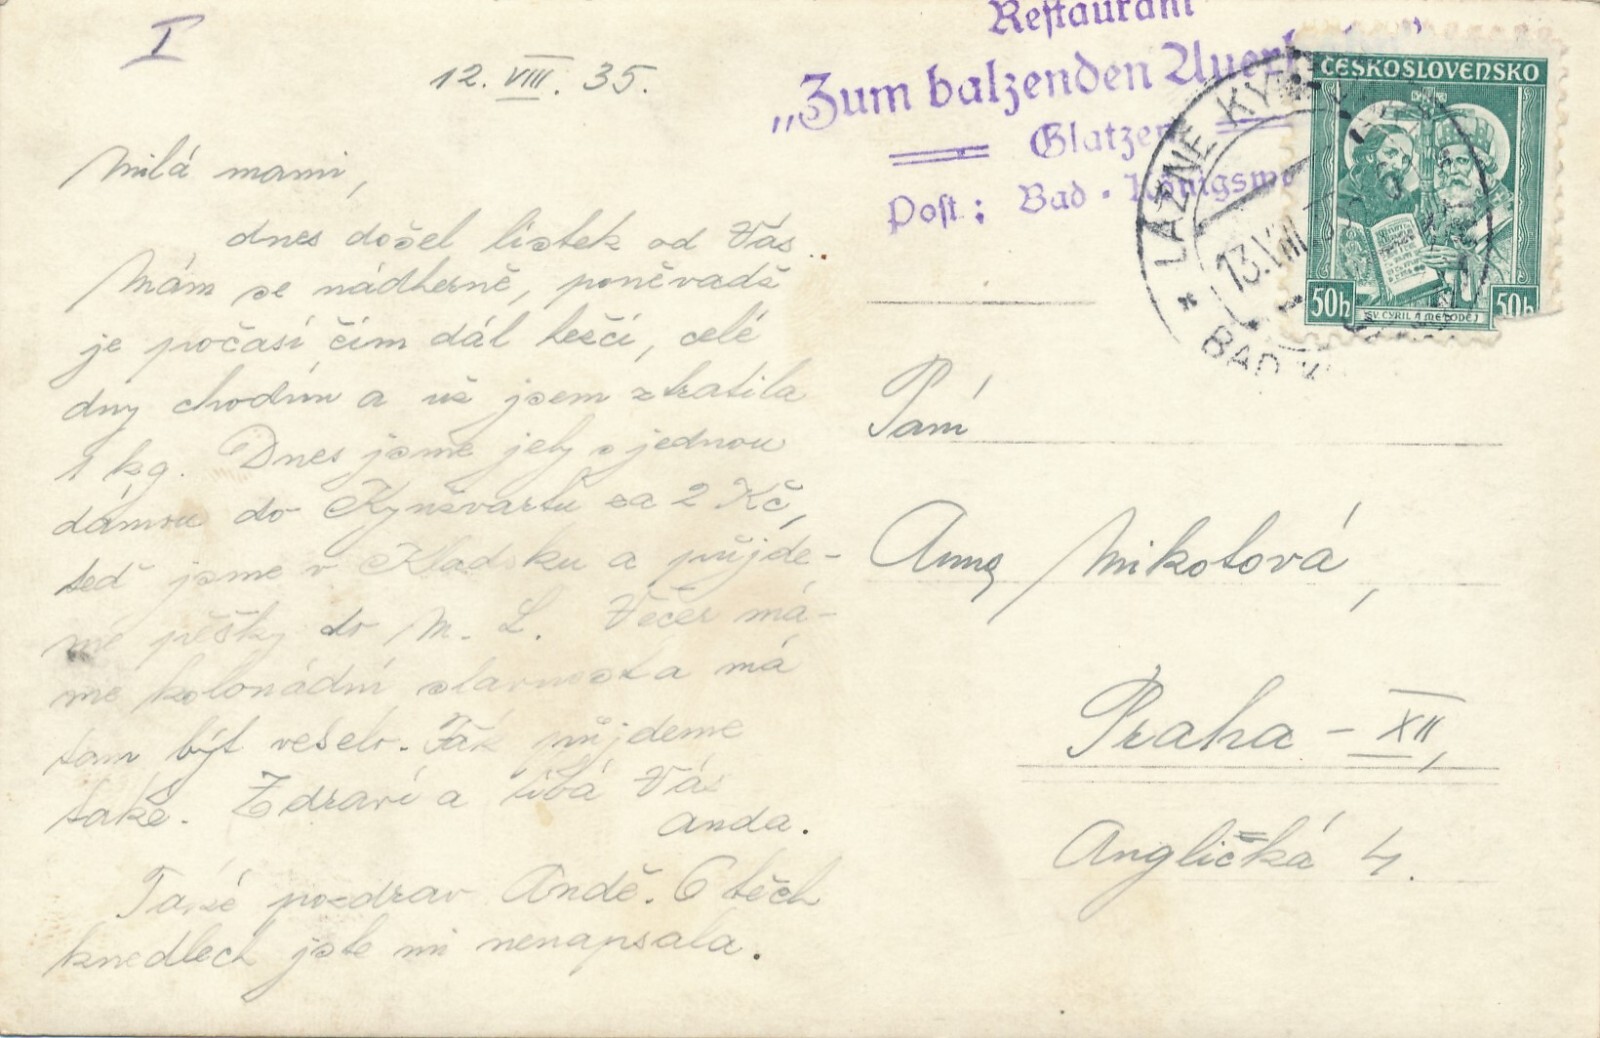 I
12. VIII. 35.
Milá mami,
dnes došel lístek od Vás.
Mám se nádherně, poněvadž
je počasí čím dál hezčí, celé
dny chodím a už jsem ztratila
1 kg. Dnes jsme jely s jednou
dámou do Kynžvartu za 2 Kč,
teď jsme v Kladsku a půjde-
me pěšky do M. L. Večer má-
me kolonádní slavnost a má
tam být veselo. Tak půjdeme
také. Zdraví a líbá Vás
Anda.
Také pozdrav Andě. O těch
knedlech jste mi nenapsala.
Restaurant
„Zum balzenden
Glatzen
Post: Bad-
LÁZNĚ
13.VIII.
BAD
ČESKOSLOVENSKO
50h 50h
SV. CYRIL A METODĚJ
Paní
Anna Mikotová,
Praha - XII,
Anglická 4.